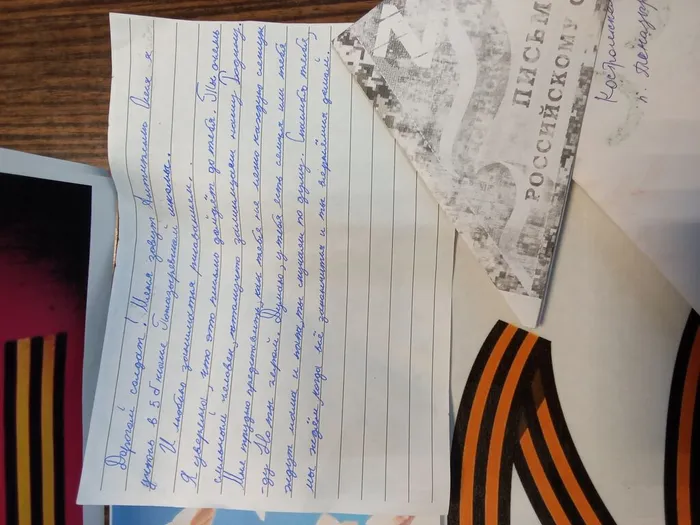 Дорогой солдат! Меня зовут Антипина Олеся я
учусь в 5б классе Поназыревской школы.
И люблю заниматься рисованием.
Я уверена, что это письмо дойдёт до тебя. Ты очень
сильный человек, потому что защищаешь нашу Родину.
Мне трудно представить, как тебе не легко каждую секун-
ду. Но ты герой. Думаю, у тебя есть семья им тебя
ждут мама и папа, ты скучаешь по дому. Спасибо тебе,
мы ждём когда всё закончится и ты вернёшься домой.
ПИСЬМ
РОССИЙСКОМУ С
п. Поназыр